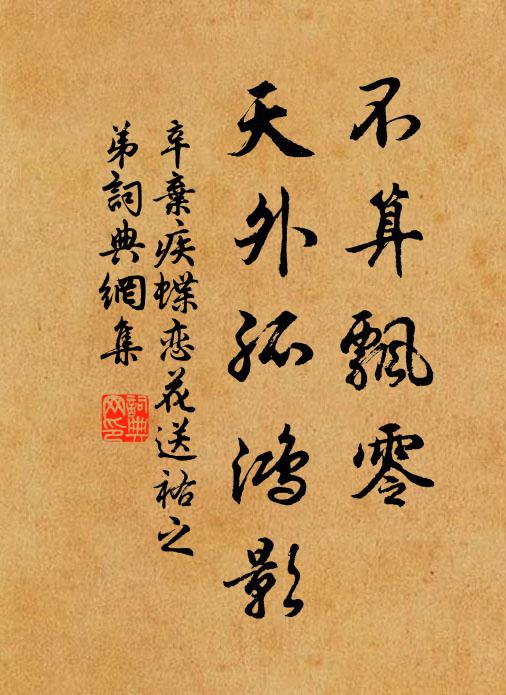 不算飄零
天外孤鸿影
辛棄疾蝶恋花送祐之
弟詞典網集
詞典
网印